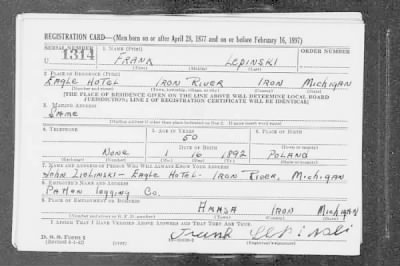 REGISTRATION CARD—(Men born on or after April 28, 1877 and on or before February 16, 1897)
SERIAL NUMBER 1. NAME (Print) ORDER NUMBER
U 1314 FRANK LEPINSKI
(First) (Middle) (Last)
2. PLACE OF RESIDENCE (Print)
EAGLE HOTEL IRON RIVER IRON MICHIGAN
(Number and street) (Town, township, village, or city) (County) (State)
[THE PLACE OF RESIDENCE GIVEN ON THE LINE ABOVE WILL DETERMINE LOCAL BOARD
JURISDICTION; LINE 2 OF REGISTRATION CERTIFICATE WILL BE IDENTICAL]
3. MAILING ADDRESS
SAME
[Mailing address if other than place indicated on line 2. If same insert word same]
4. TELEPHONE 5. AGE IN YEARS 6. PLACE OF BIRTH
50
DATE OF BIRTH
NONE 1 16 1892 POLAND
(Exchange) (Number) (Mo.) (Day) (Yr.) (State or country)
7. NAME AND ADDRESS OF PERSON WHO WILL ALWAYS KNOW YOUR ADDRESS
JOHN ZIOLINSKI — EAGLE HOTEL - IRON RIVER, MICHIGAN
8. EMPLOYER'S NAME AND ADDRESS
Logging Co.
9. PLACE OF EMPLOYMENT OR BUSINESS
IRON MICHIGAN
(Number and street or R. F. D. number) (Town) (County) (State)
I AFFIRM THAT I HAVE VERIFIED ABOVE ANSWERS AND THAT THEY ARE TRUE.
D. S. S. Form 1
(Revised 4-1-42) (Registrant's signature)
Frank